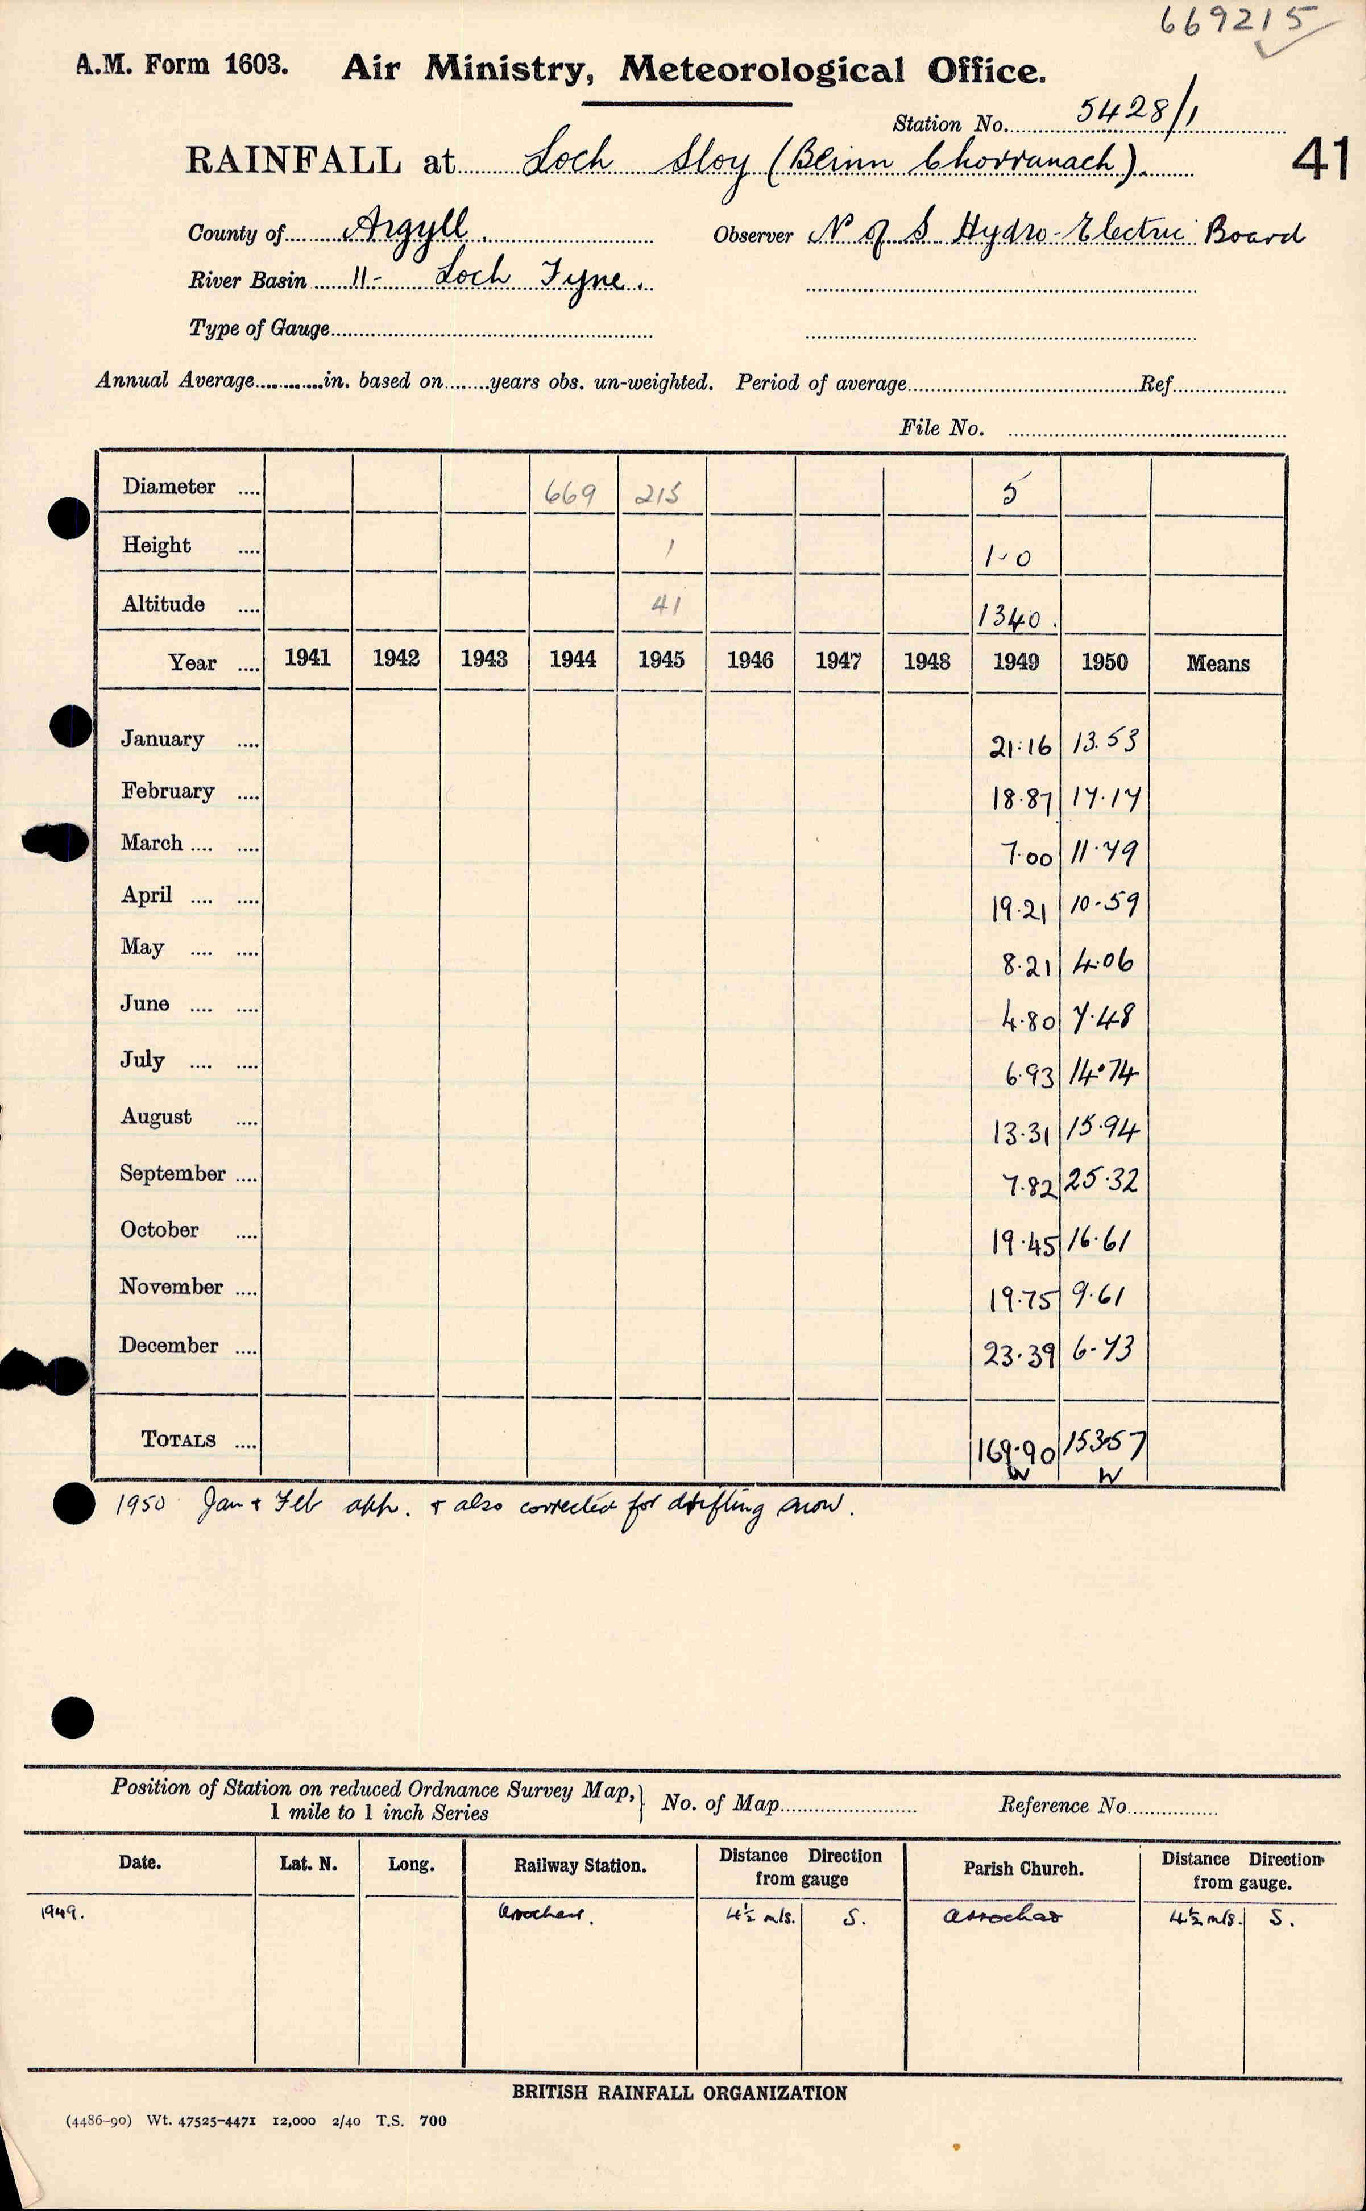 669215
A.M. Form 1603. Air Ministry, Meteorological Office.
Station No. 5428/1
RAINFALL at Loch Sloy (Beinn Chorranach). 41
County of Argyll. Observer N of S Hydro-Electric Board
River Basin 11- Loch Fyne.
Type of Gauge
Annual Average in. based on years obs. un-weighted. Period of average Ref.
File No.
Diameter .... 669 215 5
Height .... 1 1-0
Altitude .... 41 1340.
Year .... 1941 1942 1943 1944 1945 1946 1947 1948 1949 1950 Means
January .... 21.16 13.53
February .... 18.87 17.17
March .... .... 7.00 11.79
April .... .... 19.21 10.59
May .... .... 8.21 4.06
June .... .... 4.80 7.48
July .... .... 6.93 14.74
August .... 13.31 15.94
September .... 7.82 25.32
October .... 19.45 16.61
November .... 19.75 9.61
December .... 23.39 6.73
TOTALS .... 169.90 153.57
W W
1950 Jan & Feb app. & also corrected for drifting snow.
Position of Station on reduced Ordnance Survey Map, 1 mile to 1 inch Series } No. of Map Reference No.
Date. Lat. N. Long. Railway Station. Distance Direction from gauge Parish Church. Distance Direction from gauge.
1949. Arrochar. 4½ mls. S. Arrochar 4½ mls. S.
BRITISH RAINFALL ORGANIZATION
(4486-90) Wt. 47525-4471 12,000 2/40 T.S. 700